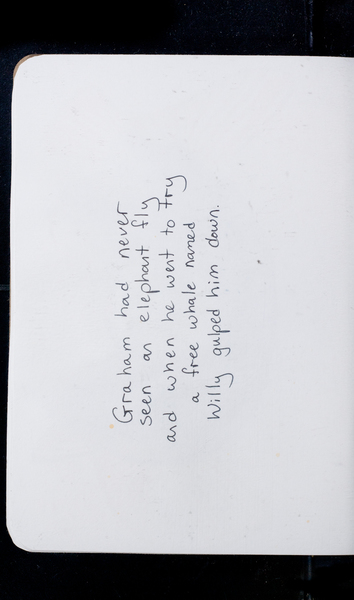 Graham had never
seen an elephant fly
and when he went to try
a free whale named
Willy gulped him down.